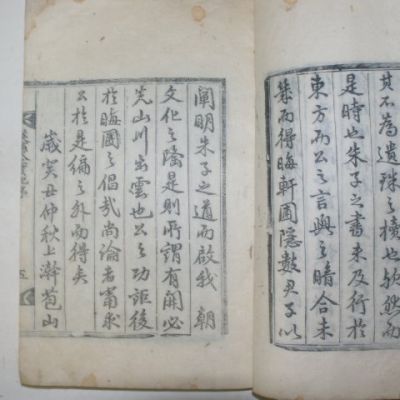 其不為遺珠之櫝也歟然而
是時也朱子之書未及行於
東方而公之言與之暗合未
幾而得晦軒圃隱數君子以
闡明朱子之道而啟我 朝
文化之隆是則所謂有開必
先山川出雲也公之功詎後
於晦圃之倡哉尚論者甯求
公於是編之外而得矣
歲癸丑仲秋上澣苞山
五